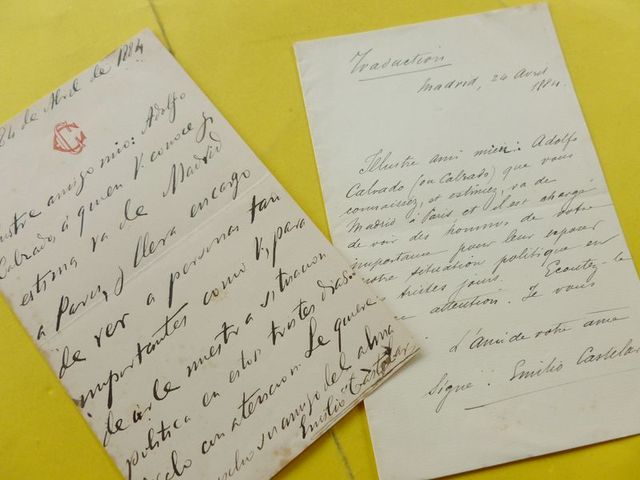 24 de Abril de 1884
ustre amigo mio: Adolfo
Calzado á quien V. conoce y
estima va de Madrid
a Paris, y lleva encargo
de ver a personas tan
importantes como V. para
decirle nuestra situacion
politica en estos tristes dias.
con atencion. Le quiere
su amigo del alma
Emilio Castelar
Traduction
Madrid, 24 Avril
1884.
Illustre ami mien: Adolfo
Calzado (ou Calzado) que vous
connaissez, et estimez, va de
Madrid à Paris et il est chargé
de voir des hommes de votre
importance pour leur exposer
notre situation politique en
tristes jours. Ecoutez-le
attention. Je vous
L'ami de votre âme
Signé: Emilio Castelar